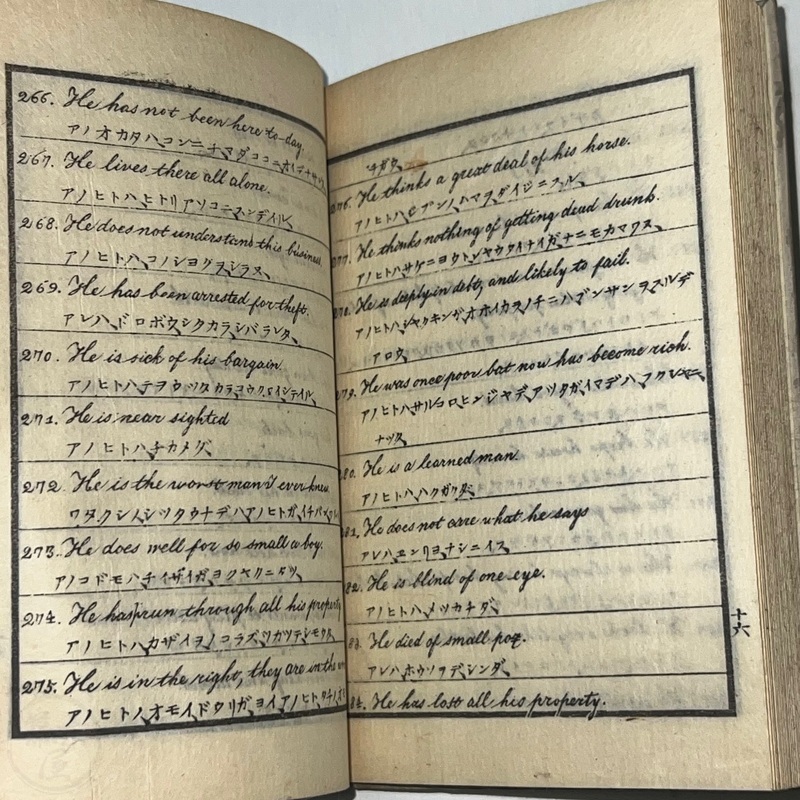 266. He has not been here to-day.
アノオカタハコンニチマダココニオイデナサ
267. He lives there all alone.
アノヒトハヒトリアソコニスンデイル
268. He does not understand this business
アノヒトハコノシヨクヲシラヌ
269. He has been arrested for theft.
アレハドロボウシタカラシバラレタ
270. He is sick of his bargain.
アノヒトハテヲウツタカラヨウクヱイシテイル
271. He is near sighted
アノヒトハチカメダ
272. He is the worst man I ever knew.
ワタクシノシツタウチデハアノヒトガイチバン
273. He does well for so small a boy.
アノコドモハチイサイガヨクヤクニタツ
274. He has run through all his property
アノヒトハカザイヲノコラズツカツテシモウタ
275. He is in the right, they are in the
アノヒトノオモイドウリガヨイアノヒトタチノ
チガウ
276. He thinks a great deal of his horse.
アノヒトハジブンノハマヲダイジニスル
277. He thinks nothing of getting dead drunk.
アノヒトハサケニヨウトシヤウタイナイガナニモカマワヌ
278. He is deeply in debt, and likely to fail.
アノヒトハシヤクキンガオホイカラノチニハブンサンヲスルデ
アロウ
279. He was once poor but now has become rich.
アノヒトハサルコロヒンジヤデアツタガイマデハフクシヤニ
ナツタ
80. He is a learned man.
アノヒトハハクガクダ
81. He does not care what he says
アレハエンリヨナシニイフ
82. He is blind of one eye.
アノヒトハメツカチダ
83. He died of small pox.
アレハホウソヲデシンダ
84. He has lost all his property.
十六